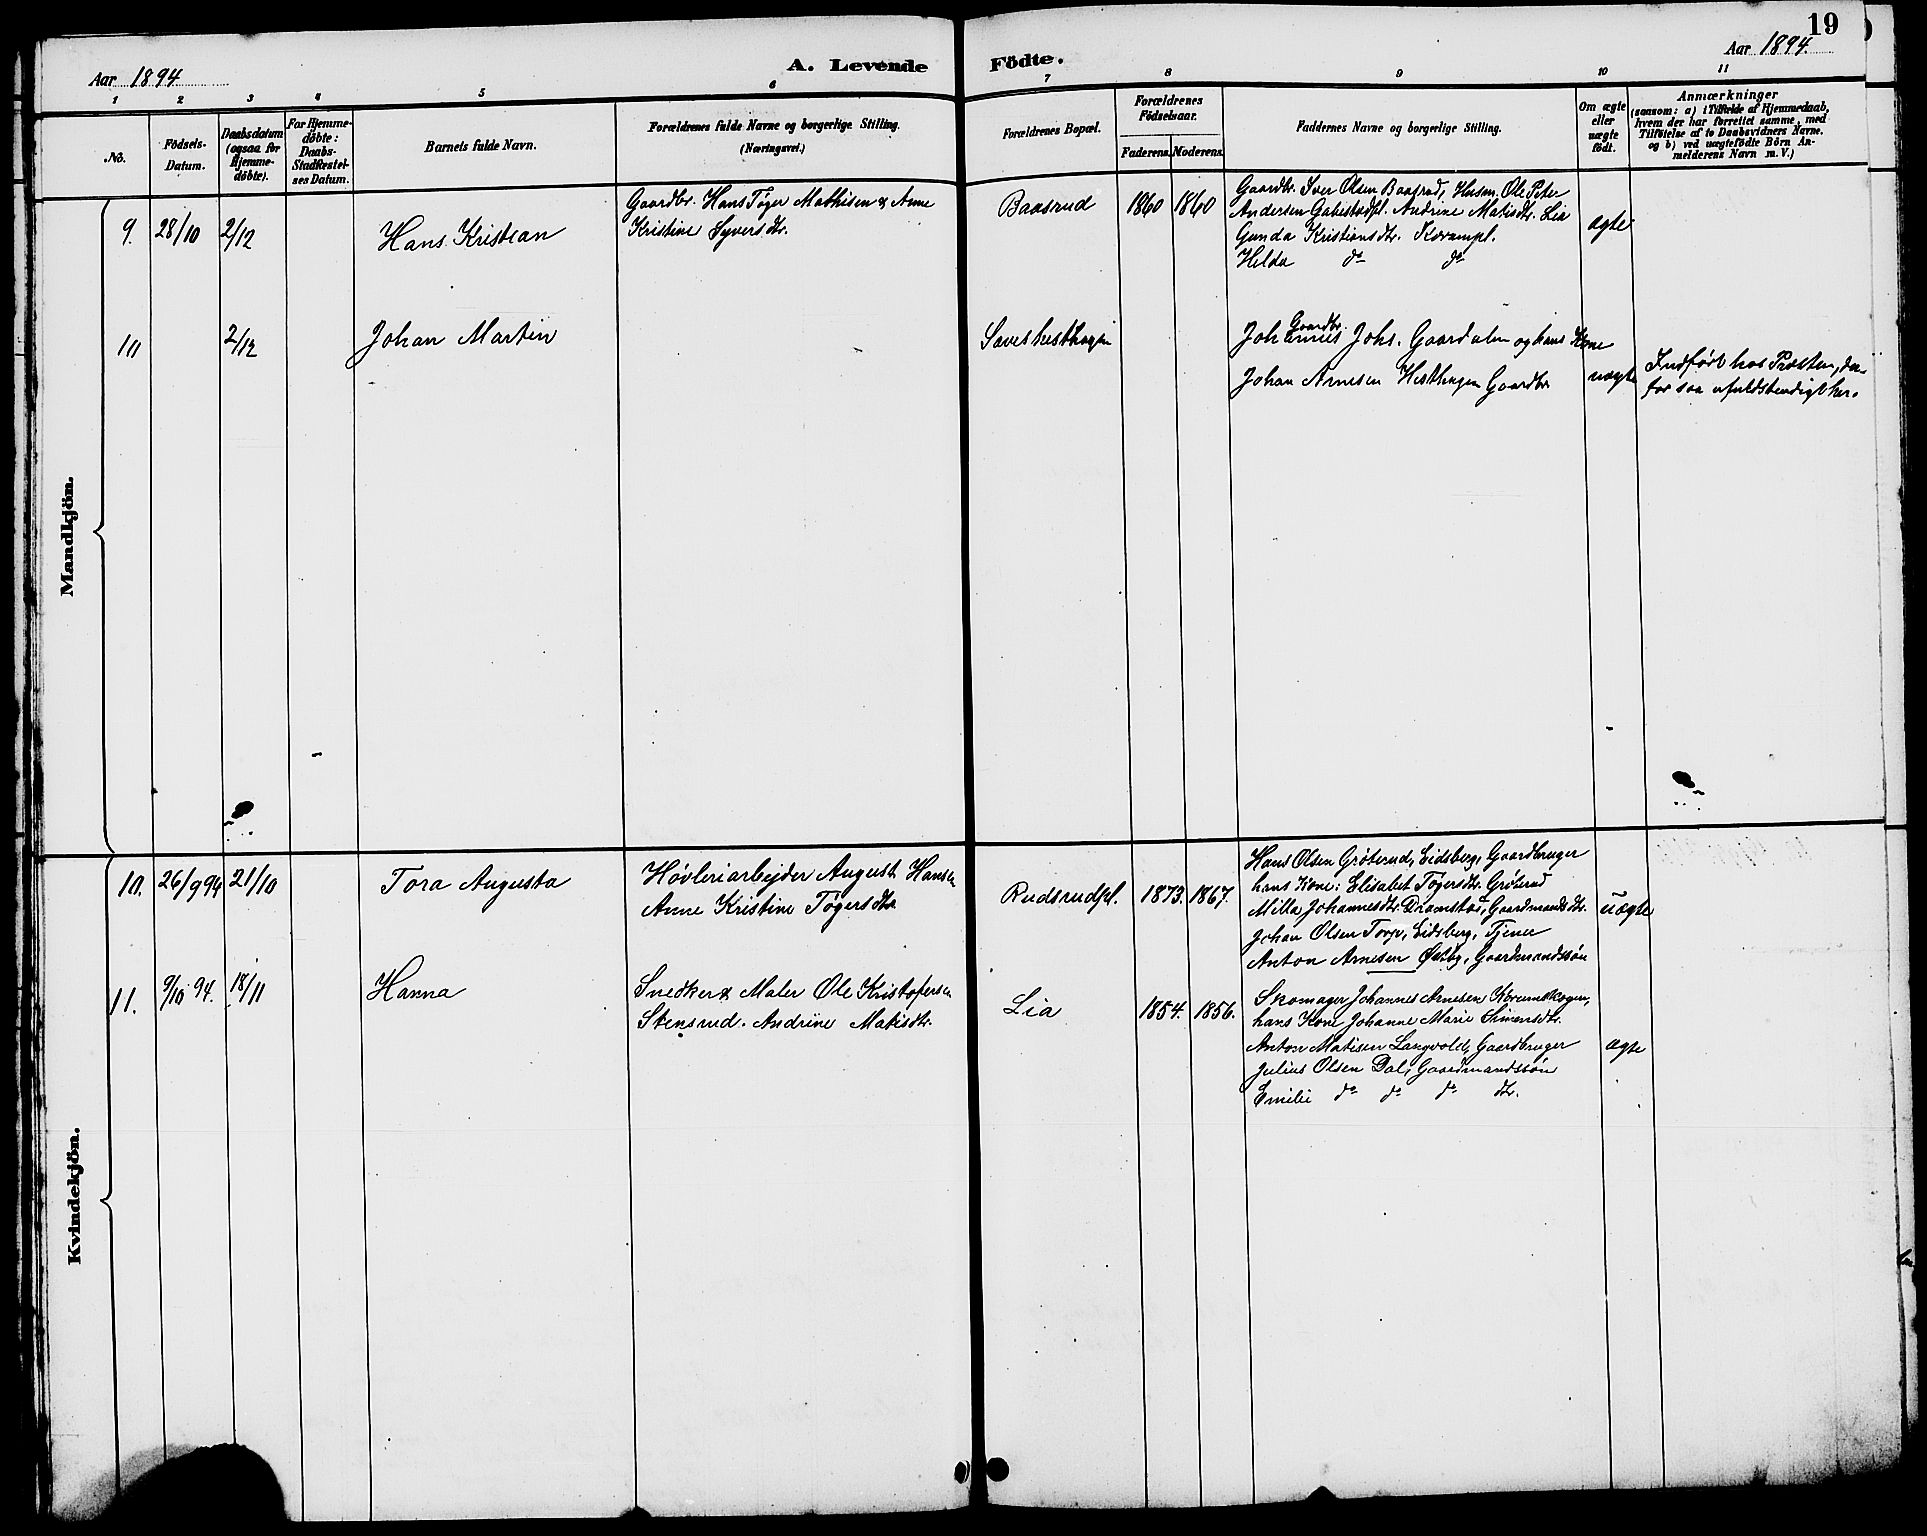 19
Aar 1894
A. Levende Födte.
Aar 1894.
1 2 3 4 5 6 7 8 9 10 11
No.
Födsels-
Datum.
Daabsdatum
(ogsaa for
Hjemme-
döbte).
For Hjemme-
döbte:
Daabs-
Stadfæstel-
ses Datum.
Barnets fulde Navn.
Forældrenes fulde Navne og borgerlige Stilling.
(Næringsvei.)
Forældrenes Bopæl.
Forældrenes
Födselsaar.
Faderens. Moderens.
Faddernes Navne og borgerlige Stilling.
Om ægte
eller
uægte
födt.
Anmærkninger
(saasom: a) i Tilfælde af Hjemmedaab,
hvem der har forrettet samme, med
Tilföielse af to Daabsvidners Navne.
og b) ved uægtefödte Börn An-
melderens Navn m. V.)
Mandkjön.
9. 28/10 2/12 Hans Kristian
Gaardbr. Hans Tøger Mathisen & Anne
Kristine Syversdtr.
Baasrud 1860 1860
Gaardbr. Iver Olsen Baasrud, Husm. Ole Peter
Andersen Gabestadpl. Andrine Matisdtr. Lia
Gunda Kristiansdtr. Korumpl.
Helda do do
ægte
10 2/12 Johan Martin
Gaardbr.
Johannes Johs. Gaardalen og hans Kone
Johan Arnesen Hesthagen Gaardbr
uægte
Indført hos Præsten, der-
for saa ufuldstendigt her.
Kvindekjön.
10. 26/9 94 21/10 Tora Augusta
Høvleriarbejder August Hansen
Anne Kristine Tøgersdtr
Rudsrudpl. 1873. 1867.
Hans Olsen Grøterud, Eidsberg, Gaardbruger
hans Kone: Elisabet Tøgersdtr. Grøterud
Milla Johannesdtr. Dramstad, Gaardmandsdtr.
Johan Olsen Torp, Eidsberg, Tjener
Anton Arnesen Østby, Gaardmandssøn
uægte
11. 9/10 94. 18/11 Hanna
Snedker & Maler Ole Kristofersen
Stensrud. Andrine Matisdtr.
Lia 1854. 1856.
Skomager Johannes Arnesen Korumskogen,
hans Kone Johanne Marie Simensdtr.
Anton Matisen Langvold, Gaardbruger
Julius Olsen Dal, Gaardmandssøn
Emilie do do do dtr.
ægte